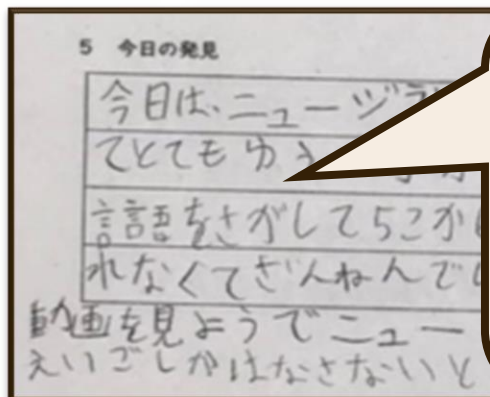 5 今日の発見
今日は、ニュージ
てとてもゆう
言語をさがして5こか
れなくてざんねんで
動画を見ようでニュー
えいごしかはなさないと